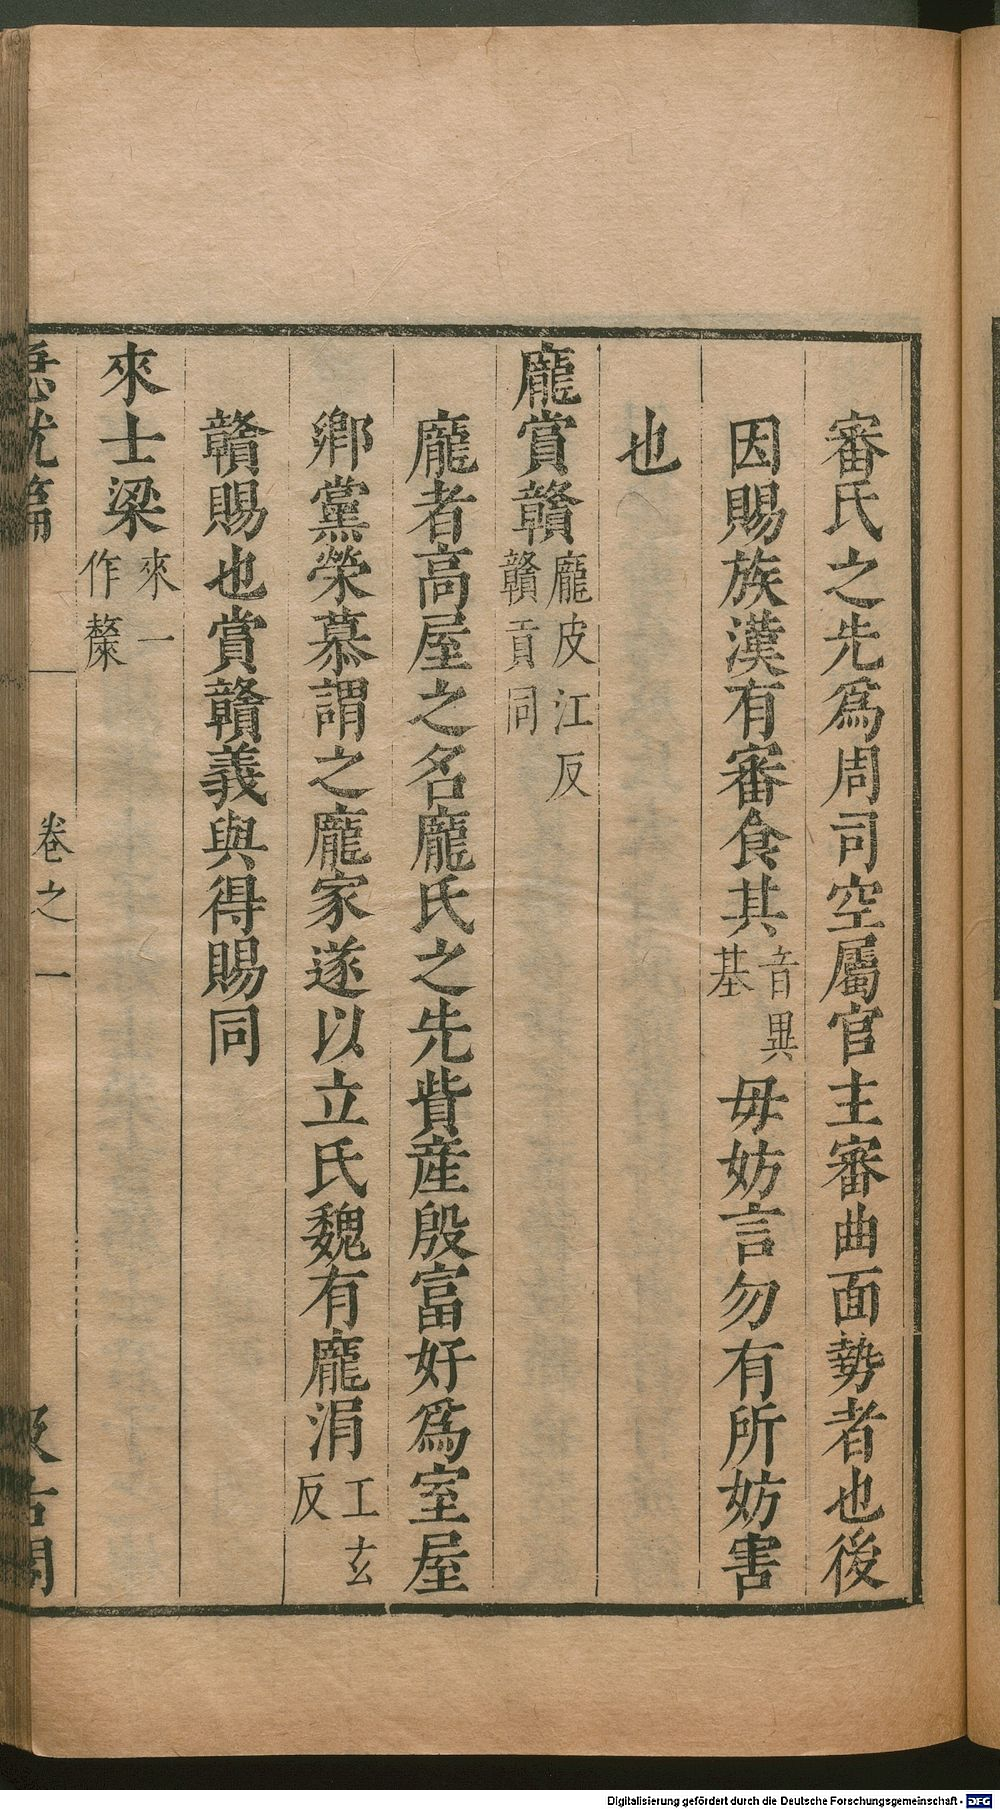 審氏之先爲周司空屬官主審曲面勢者也後
因賜族漢有審食其音異基毋妨言勿有所妨害
也
龐賞贛龐皮江反贛貢同
龐者高屋之名龐氏之先貲産殷富好爲室屋
鄉黨榮慕謂之龐家遂以立氏魏有龐涓工玄反
贛賜也賞贛義與得賜同
來士梁來一作斄
急就篇 卷之一 汲古閣
Digitalisierung gefördert durch die Deutsche Forschungsgemeinschaft - DFG